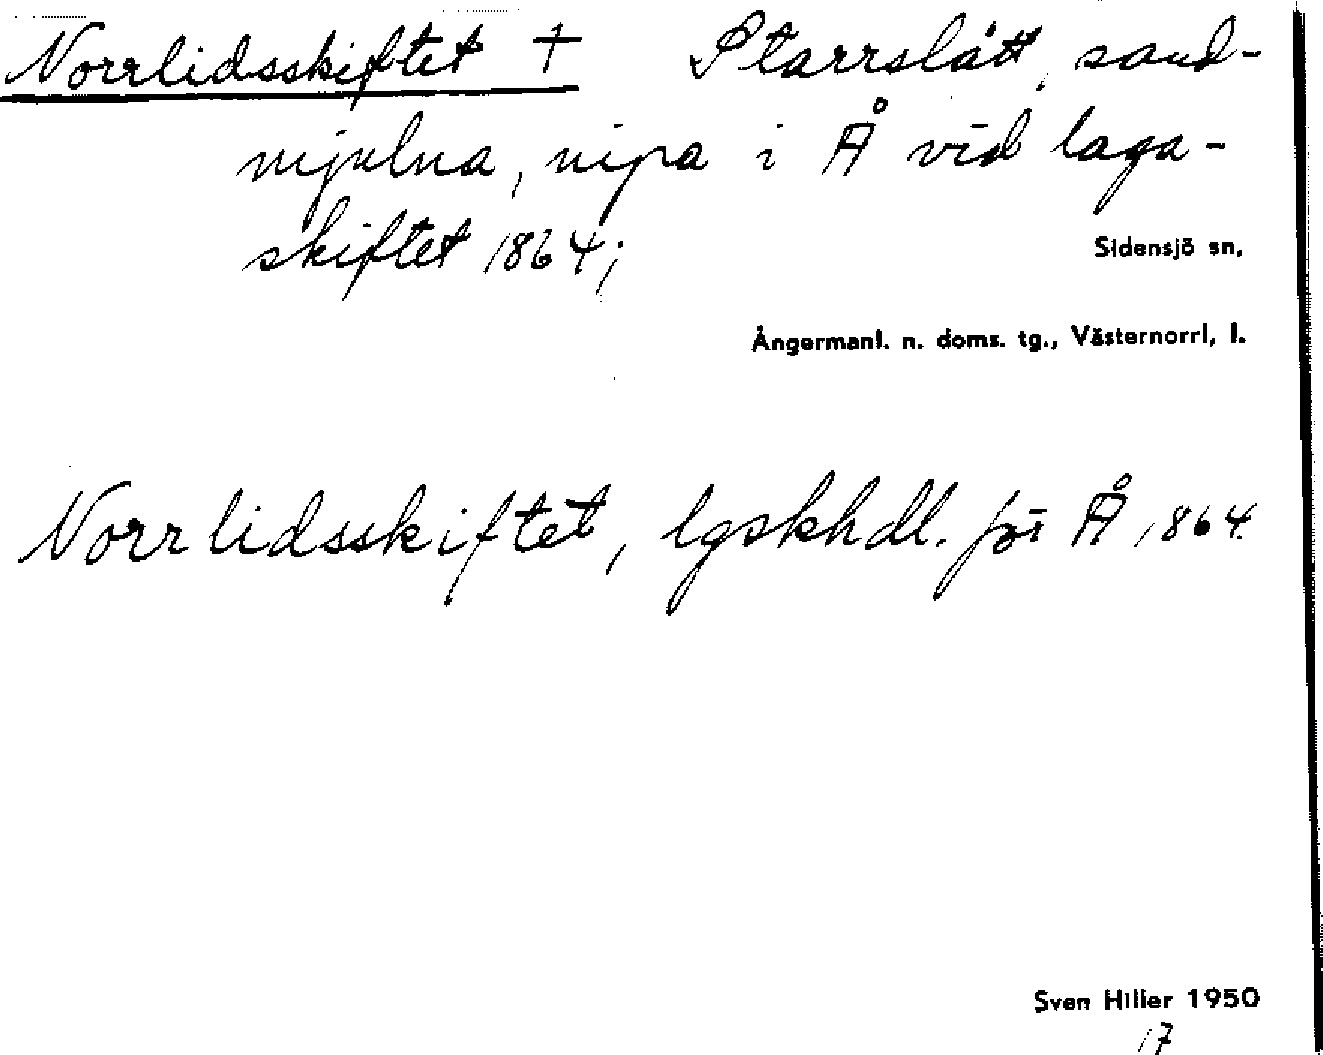 Norrlidsskiftet † Starrslått, sand-
mjulna, nipa i Å vid laga-
skiftet 1864;
Sidensjö sn.
Ångermanl. n. doms. tg., Västernorrl. l.
Norrlidsskiftet, lgskhdl. för Å 1864.
Sven Hiller 1950
17